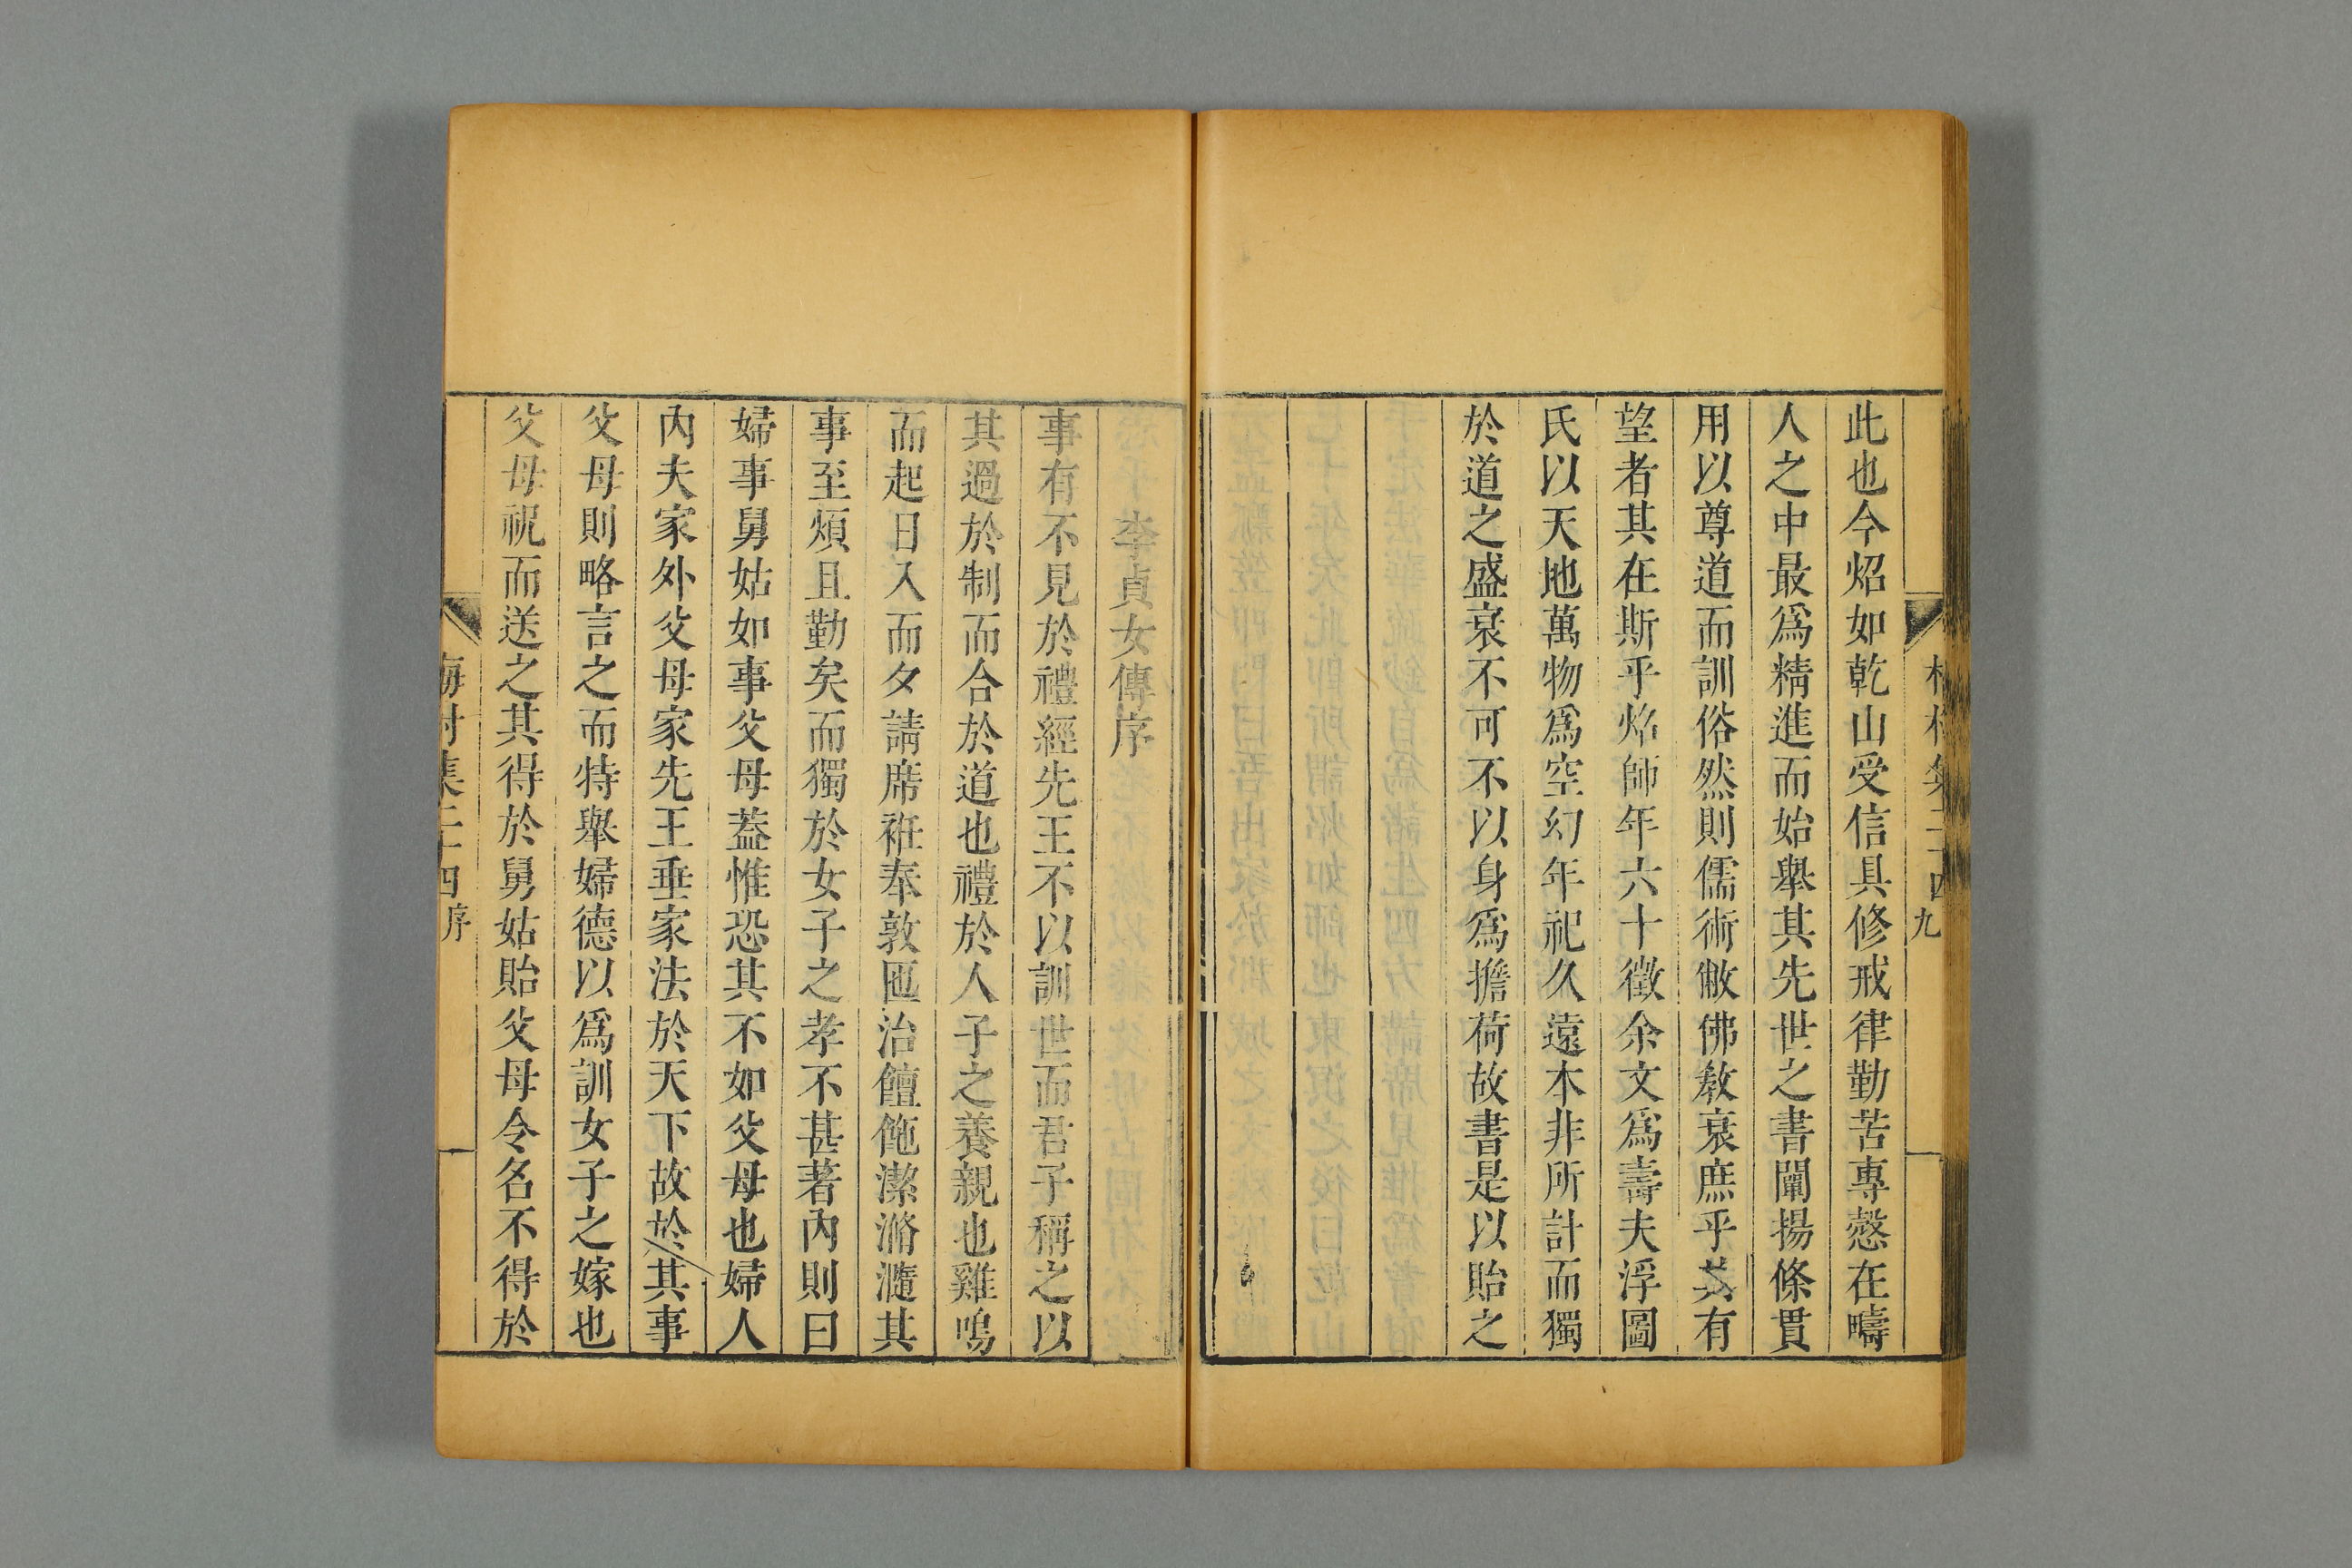 此也今炤如乾山受信具修戒律勤苦專愨在疇
人之中最爲精進而始舉其先世之書闡揚條貫
用以尊道而訓俗然則儒術敝佛敎衰庶乎其有
望者其在斯乎炤師年六十徵余文爲壽夫浮圖
氏以天地萬物爲空幻年祀久遠本非所計而獨
於道之盛衰不可不以身爲擔荷故書是以貽之
九
李貞女傳序
事有不見於禮經先王不以訓世而君子稱之以
其過於制而合於道也禮於人子之養親也雞鳴
而起日入而夕請席袵奉敦匜治饘酏潔滫瀡其
事至煩且勤矣而獨於女子之孝不甚著內則曰
婦事舅姑如事父母蓋惟恐其不如父母也婦人
內夫家外父母家先王垂家法於天下故於其事
父母則略言之而特舉婦德以爲訓女子之嫁也
父母祝而送之其得於舅姑貽父母令名不得於
海村集二十四 序